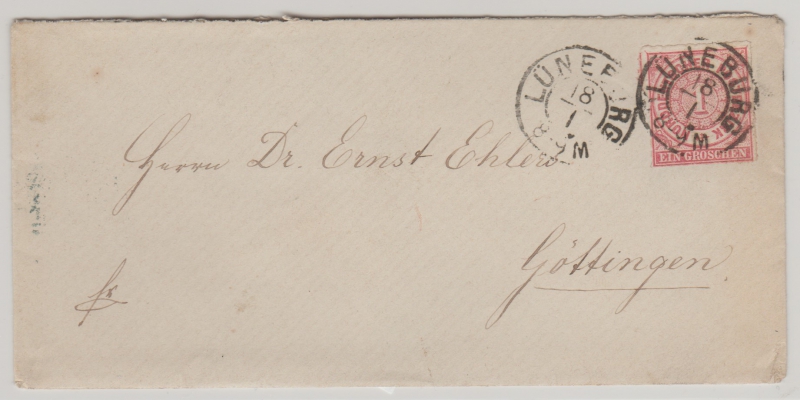 LÜNEBURG
18/1
LÜNEBURG
18/1
1
EIN GROSCHEN
Herrn Dr. Ernst Ehlers
Göttingen
fr